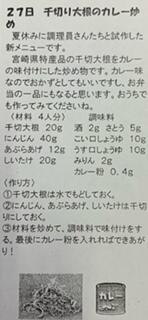 27日　千切り大根のカレー炒
め
　夏休みに調理員さんたちと試作した
新メニューです。
　宮崎県特産品の千切大根をカレー
の味付けにした炒め物です。カレー味
なのでおかずとしてもいいですし、お弁
当の一品にもなると思います。おうちで
も作ってみてくださいね。
〈材料　4人分〉　調味料
千切大根　20g　酒 2g さとう 5g
にんじん　40g　こいロしょうゆ　10g
あぶらあげ　12g　うす口しょうゆ　10g
しいたけ　20g　みりん　2g
カレー粉　0.4g
〈作り方〉
①千切大根は水でもどしておく。
②にんじん、あぶらあげ、しいたけは千切
りにしておく。
③材料を炒めて、調味料で味付けをす
る。最後にカレー粉を入れればできあが
り！
カレー